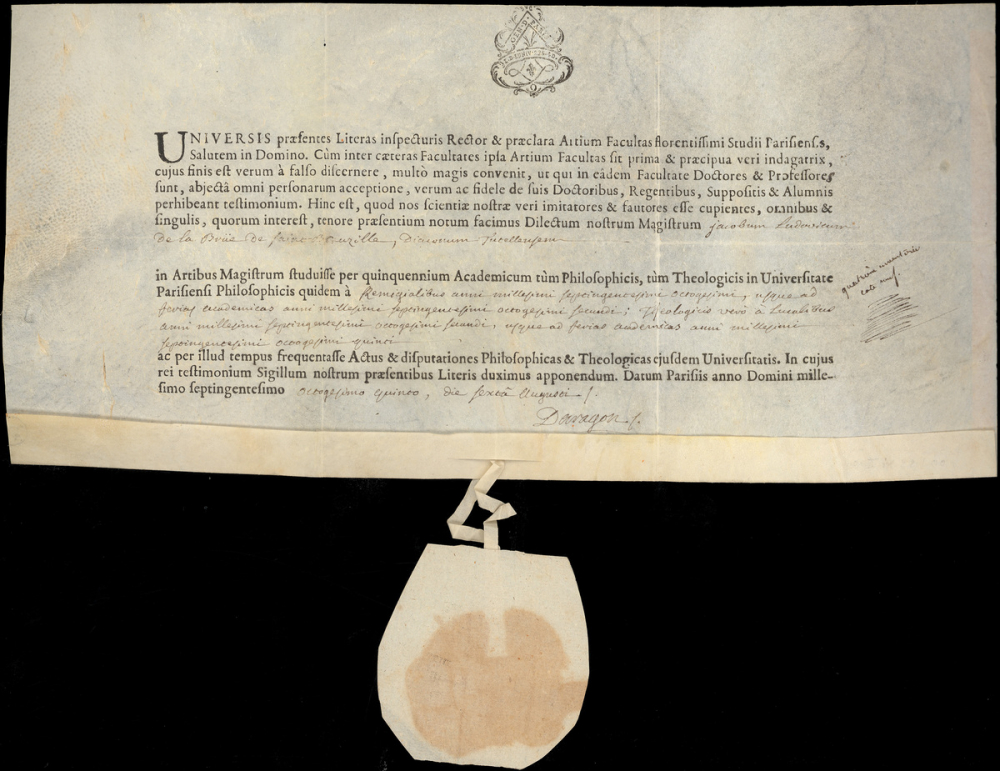 GEN. D PARIS
UNIVERSIS præſentes Literas inſpecturis Rector & præclara Artium Facultas florentiſſimi Studii Pariſienſis,
Salutem in Domino. Cùm inter cæteras Facultates ipſa Artium Facultas ſit prima & præcipua veri indagatrix,
cujus finis eſt verum à falſo diſcernere, multò magis convenit, ut qui in eâdem Facultate Doctores & Profeſſores
ſunt, abjectâ omni perſonarum acceptione, verum ac fidele de ſuis Doctoribus, Regentibus, Suppoſitis & Alumnis
perhibeant teſtimonium. Hinc eſt, quod nos ſcientiæ noſtræ veri imitatores & fautores eſſe cupientes, omnibus &
ſingulis, quorum intereſt, tenore præſentium notum facimus Dilectum noſtrum Magiſtrum jacobum Ludovicum
de la Brüe de ſaint
in Artibus Magiſtrum ſtuduiſſe per quinquennium Academicum tùm Philoſophicis, tùm Theologicis in Univerſitate
Pariſienſi Philoſophicis quidem à Remigialibus anni milleſimi ſeptingenteſimi octogeſimi, uſque ad
ferias academicas anni milleſimi ſeptingenteſimi octogeſimi ſecundi; Theologicis verò à Lucalibus
anni milleſimi ſeptingenteſimi octogeſimi ſecundi, uſque ad ferias academicas anni milleſimi
ſeptingenteſimi octogeſimi quinti
ac per illud tempus frequentaſſe Actus & diſputationes Philoſophicas & Theologicas ejuſdem Univerſitatis. In cujus
rei teſtimonium Sigillum noſtrum præſentibus Literis duximus apponendum. Datum Pariſiis anno Domini mille-
ſimo ſeptingenteſimo octogeſimo quinto, die ſextâ Auguſti
Darragon